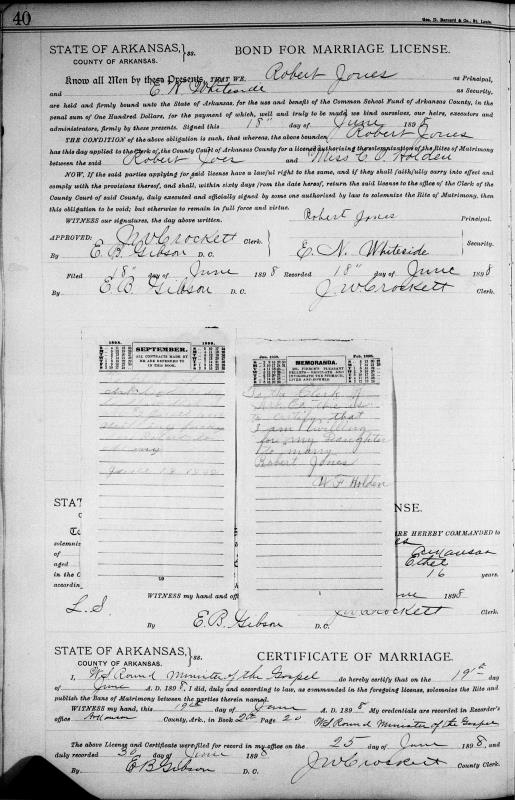 40
Geo. D. Barnard & Co., St. Louis.
STATE OF ARKANSAS, } ss.
COUNTY OF ARKANSAS.
BOND FOR MARRIAGE LICENSE.
Know all Men by these Presents, THAT WE, Robert Jones as Principal,
and E. N. Whiteside as Security,
are held and firmly bound unto the State of Arkansas, for the use and benefit of the Common School Fund of Arkansas County, in the
penal sum of One Hundred Dollars, for the payment of which, well and truly to be made we bind ourselves, our heirs, executors and
administrators, firmly by these presents. Signed this 18" day of June 1898
THE CONDITION of the above obligation is such, that whereas, the above bounden Robert Jones
has this day applied to the Clerk of the County Court of Arkansas County for a License authorizing the solemnization of the Rites of Matrimony
between the said Robert and Miss C. O. Holden
NOW, If the said parties applying for said license have a lawful right to the same, and if they shall faithfully carry into effect and
comply with the provisions thereof, and shall, within sixty days from the date hereof, return the said license to the office of the Clerk of the
County Court of said County, duly executed and officially signed by some one authorized by law to solemnize the Rite of Matrimony, then
this obligation to be void; but otherwise to remain in full force and virtue.
WITNESS our signatures, the day above written. Robert Jones Principal.
APPROVED: J W Crockett Clerk.
By E. B. Gibson D. C. E. N. Whiteside Security.
Filed 18" day of June 1898 Recorded 18" day of June 1898
By E B Gibson D. C. J W Crockett Clerk.
1898. SEPTEMBER. 1898.
ALL CONTRACTS MADE BY
ME ARE REFERRED TO
IN THIS BOOK.
Jan., 1898. MEMORANDA. Feb., 1898.
DR. PIERCE'S PLEASANT
PELLETS—REGULATE AND
INVIGORATE THE STOMACH,
LIVER AND BOWELS.
To the Clerk of
to certify that
I am willing
for my Daughter
to marry
Robert Jones
W F Holden
STAT
NSE.
To
ARE HEREBY COMMANDED to
solemnize
of Arkansas
Ethel
aged 16 years.
in the C
according
WITNESS my hand and offi 1898
L. S. J W Crockett Clerk.
By E. B. Gibson D. C.
STATE OF ARKANSAS, } ss.
COUNTY OF ARKANSAS.
CERTIFICATE OF MARRIAGE.
I, W S Round Minister of the Gospel do hereby certify that on the 19th day
of June A. D. 1898, I did, duly and according to law, as commanded in the foregoing license, solemnize the Rite and
publish the Bans of Matrimony between the parties therein named.
WITNESS my hand, this 19th day of June A. D. 1898 My credentials are recorded in Recorder's
office Arkansas County, Ark., in Book Page 20 W S Round Minister of the Gospel
The above License and Certificate were filed for record in my office on the 25 day of June 1898, and
duly recorded 30 day of June 1898
By E B Gibson D. C. J W Crockett County Clerk.